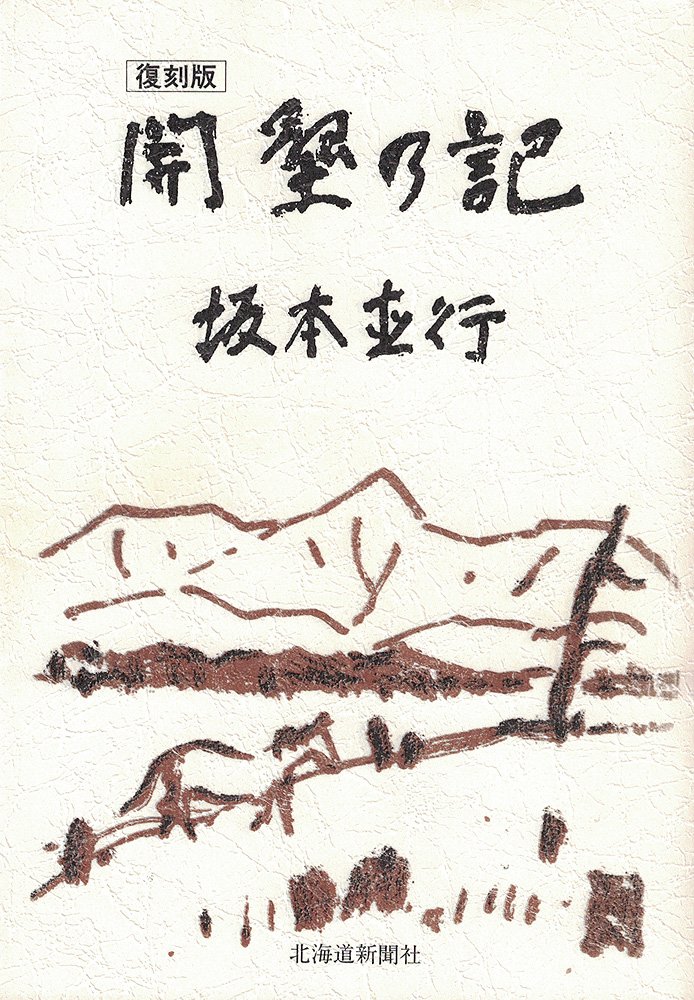 復刻版
開墾乃記
坂本直行
北海道新聞社